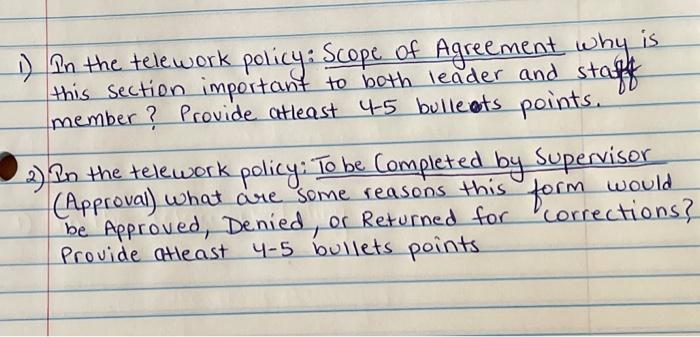 1) In the telework policy: Scope of Agreement why is
this section important to both leader and staff
member? Provide atleast 4-5 bulleots points.
2) In the telework policy: To be Completed by Supervisor
(Approval) what are some reasons this form would
be Approved, Denied, or Returned for corrections?
Provide atleast 4-5 bullets points